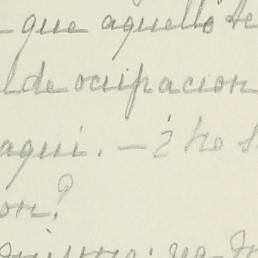 - que aquello te
l de ocupacion
aqui. - ¿ No s
on?